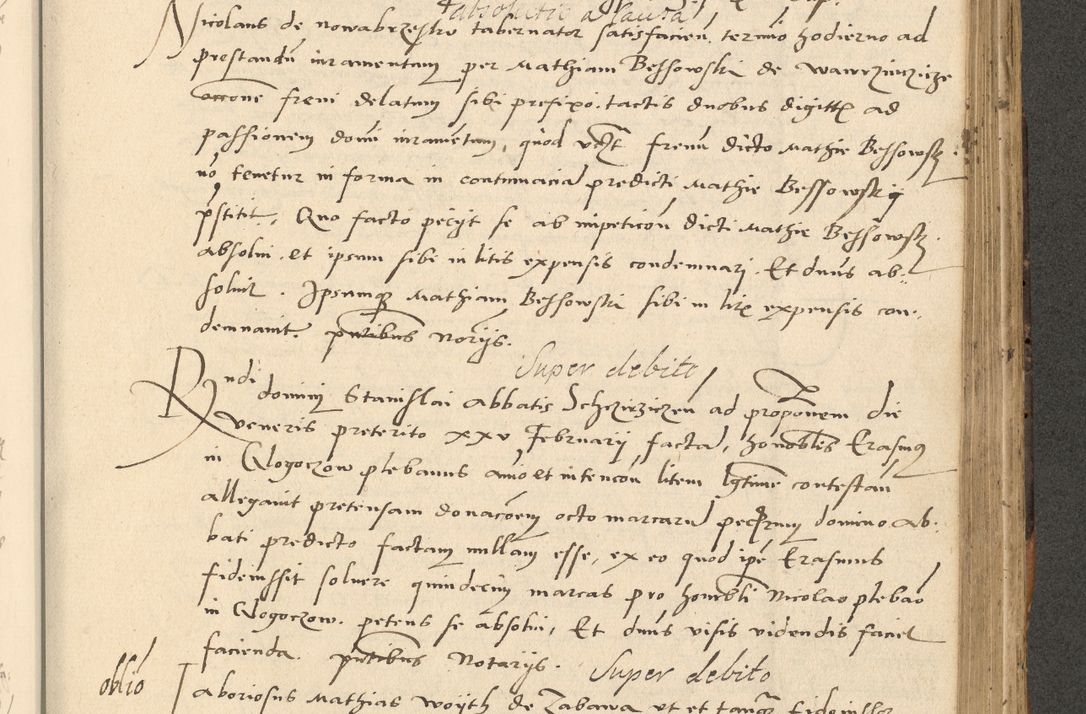 absolutio a causa
Nicolaus de nowabrzesko tabernator satisfacien. termino hodierno ad
prestandum iuramentum per Mathiam Bessowski de wawrzinczize
occone freni delatum sibi prefixo. tactis duobus digittis ad
passionem domi iuramentum, quod freni dicto Mathie Bessowsky
no tenetur in forma in contumacia predicti Mathie Bessowskij
pstitit. Quo facto pecijt se ab impeticoni dicti Mathie Bessowsky
absolui. et ipsum sibi in litis expensis condemnari. Et dnus ab-
soluit. Ipsumque Mathiam Bessowski sibi in litis expensis con-
demnauit. pntibus Norijs.
Super debito
Rndi dominj Stanislai Abbatis ad propconem die
veneris preterito xxv Februarij facta, honobilis Erasmus
in Glogoczow plebanus litem lgtime contestan
allegauit pretensam donacoem octo marcarum domino Ab-
bati predicto factam nullam esse, ex eo quod ipe Erasmus
fideiussit soluere quindecim marcas pro honobli Nicolao plebao
in Glogoczow. petens se absolui, Et dnus visis videndis faciet
facienda. pntibus Notarijs. Super debito
oblio Laboriosus Mathias woyth de Zabawa vt et tanq fideiussor